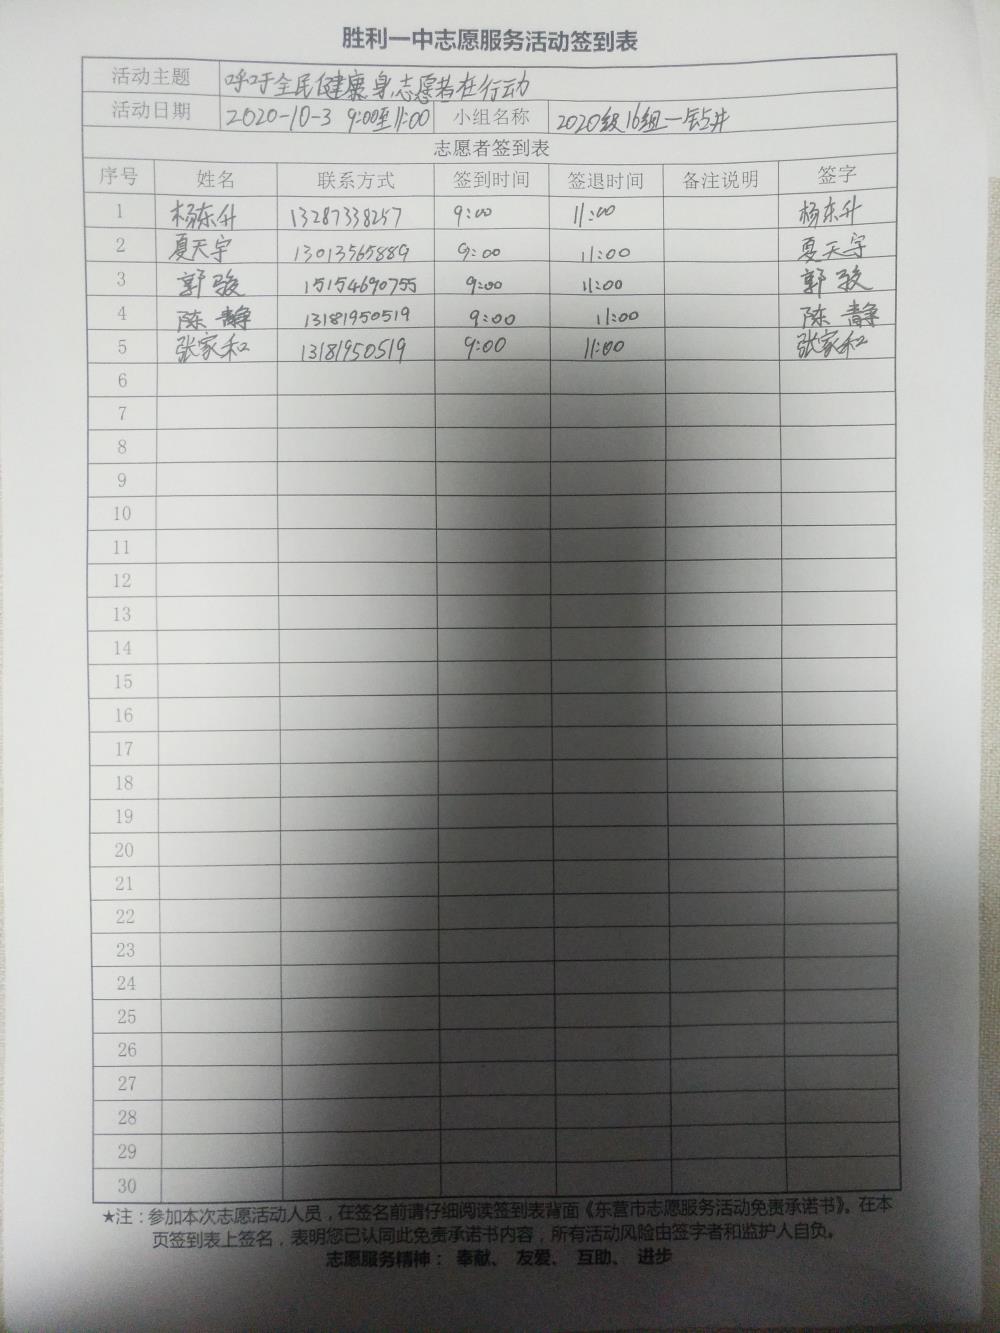 胜利一中志愿服务活动签到表
活动主题 呼吁全民健康身,志愿者在行动
活动日期 2020-10-3 9:00至11:00 小组名称 2020级16组一钻井
志愿者签到表
序号 姓名 联系方式 签到时间 签退时间 备注说明 签字
1 杨东升 13287338257 9:00 11:00 杨东升
2 夏天宇 13013565889 9:00 11:00 夏天宇
3 郭骏 15154690755 9:00 11:00 郭骏
4 陈静 13181950519 9:00 11:00 陈静
5 张家和 13181950519 9:00 11:00 张家和
6
7
8
9
10
11
12
13
14
15
16
17
18
19
20
21
22
23
24
25
26
27
28
29
30
★注:参加本次志愿活动人员,在签名前请仔细阅读签到表背面《东营市志愿服务活动免责承诺书》。在本
页签到表上签名,表明您已认同此免责承诺书内容,所有活动风险由签字者和监护人自负。
志愿服务精神: 奉献、 友爱、 互助、 进步